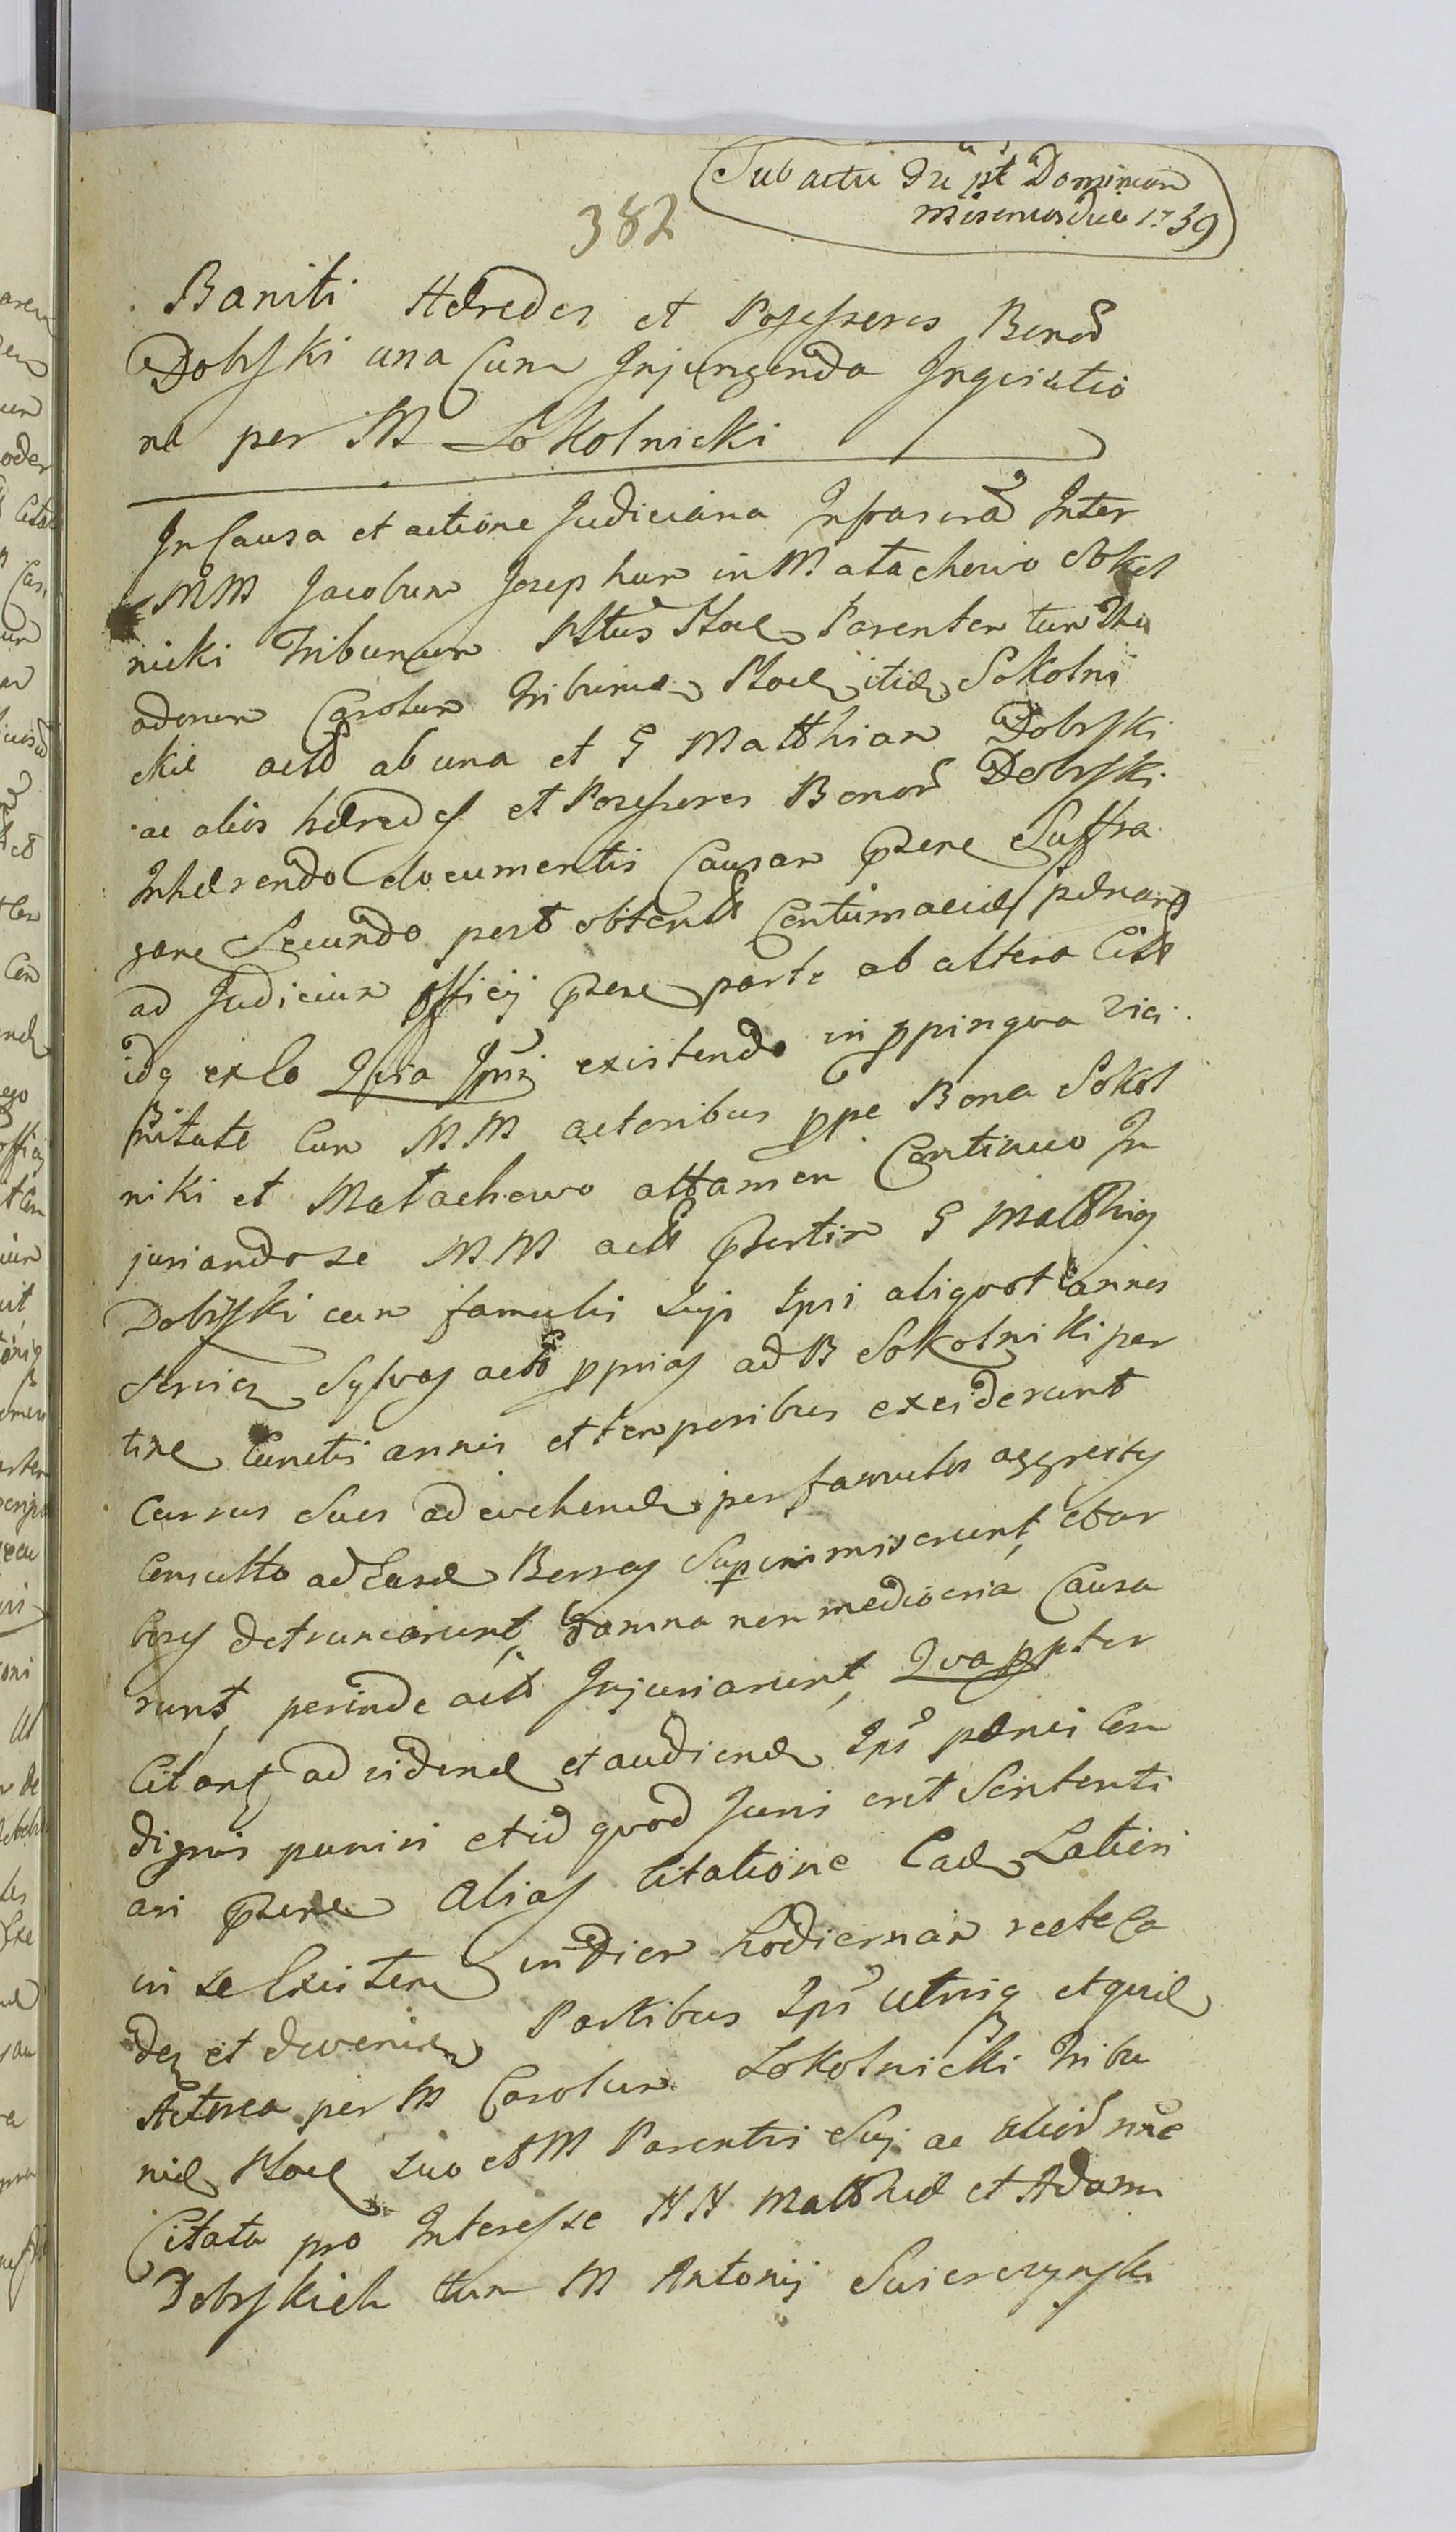 Sub actu Fr: 2 pt Dominicam
misericordiae 1739
382
Baniti Hæredes et Possessores Bonor
Dobrski una cum Injungenda Inquisitio
ne per M Sokolnicki
In Causa et actione Judiciaria Infrascra Inter
MM Jacobum Josephum in Matachowo Sokol
nicki Tribunum Parentem tum
Carolum Tribunid itid Sokolni
ckie act ab una et G Matthiam Dobrski
ac alios hæredes et Possessores Bonor Dobrski
Inhærendo documentis Causam Suffra
gane Secundo post obtent Contumaciæ pænam
ad Judicium officij parte ab altera Citt
idq ex eo Quia Ipsi existendo in ppinqua vici
nitate Cum MM actoribus ppe Bona Sokol
niki et Matachowo attamen Continuo In
juriando se MM actt G Matthias
Dobrski cum famulis suis Ipsi aliquot annis
Sylvas actt pprias ad B Sokolniki per
tine Cunctis annis et temporibus exciderunt
Currus suos ad evehend per famulos aggrestes
Consulto ad Easd Borras Superimmiserunt, et ar
bores detruncarunt, damna non mediocria Causa
runt, perinde actt Injuriarunt, Qua ppter
Citant ad vidend et audiend Ips pænis Con
dignis puniri et id quod Juris erit Sententi
ari alias Citatione Ead Latiori
in se Existen in diem hodiernam recte Ca
den et devenien Partibus Ips utrisq et quid
Actorea per M Carolum Sokolnicki Tribu
nid suo et M Parentis Sui ac alior nne
Citata pro Interesse NN Matthiæ et Adami
Dobrskich tum M Antonij Swierczynski